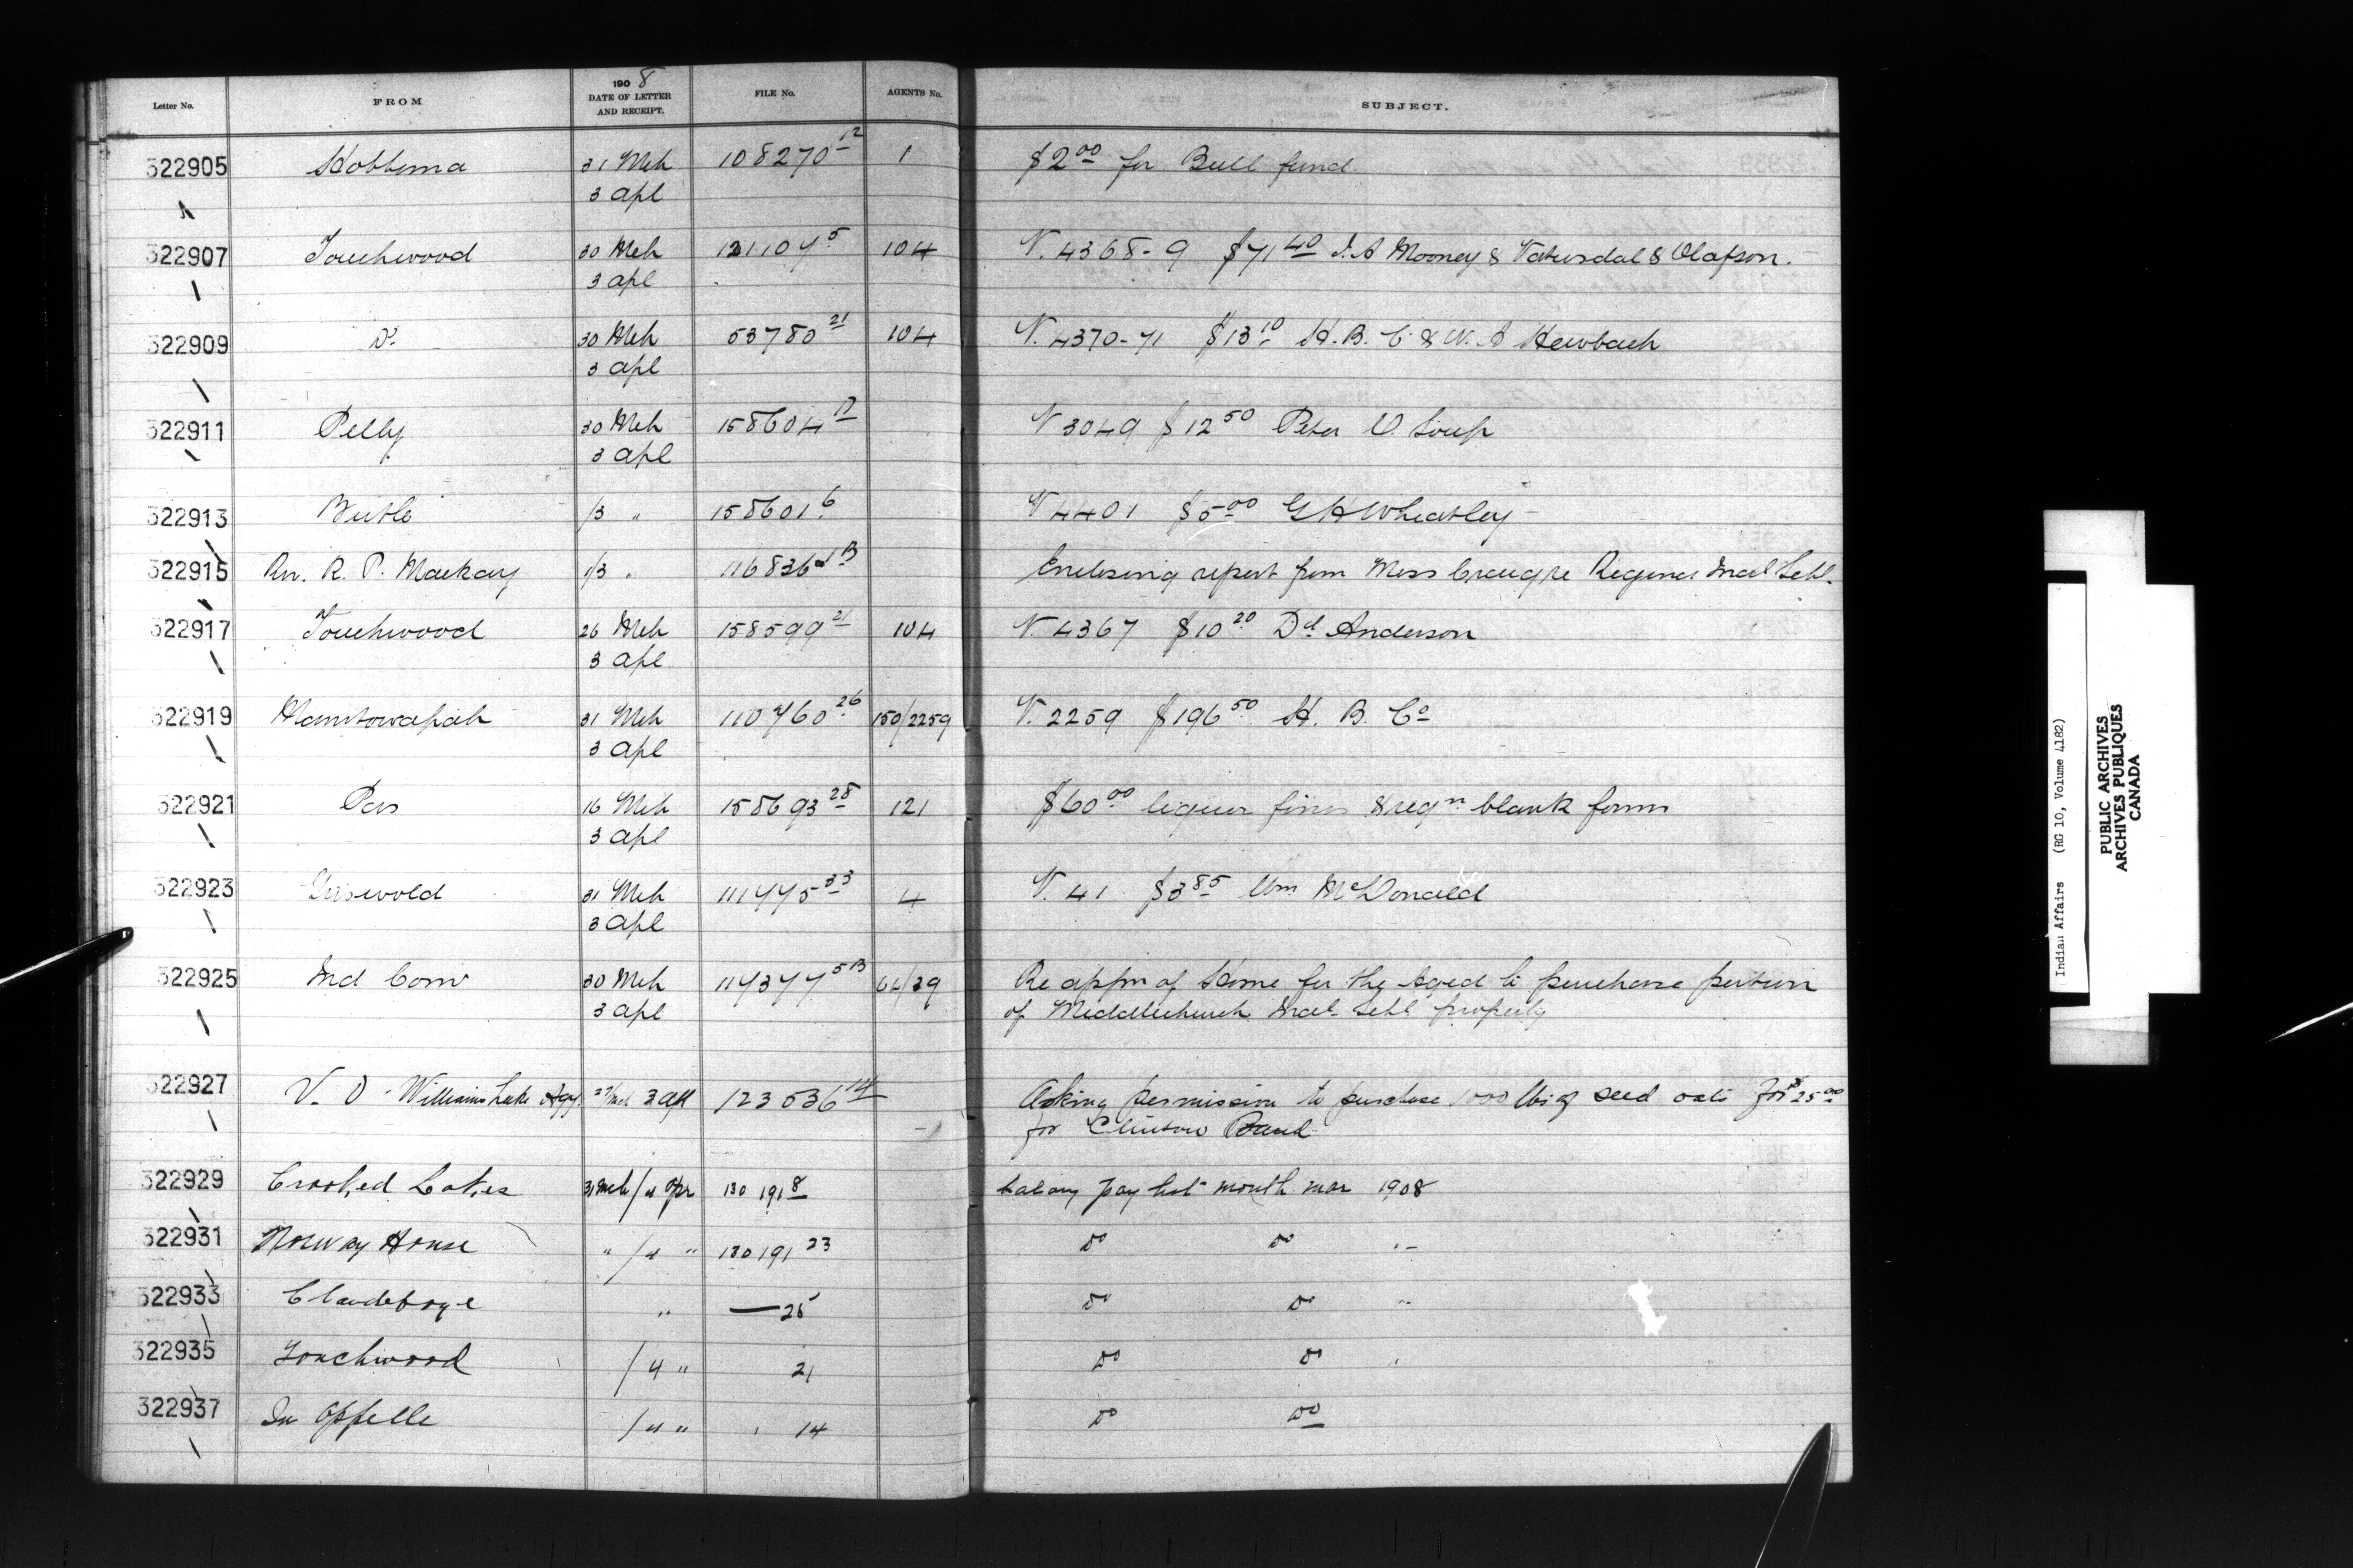 Letter No. FROM 1908 DATE OF LETTER AND RECEIPT. FILE No. AGENTS No. SUBJECT.
322905 Hobbema 31 Mch 108270 12 1 $2 00 for Bull fund
3 Apl
322907 Touchwood 30 Mch 121107 5 104 V. 4368-9 $71 40 J. A Mooney & Vatnsdal & Olafson.
3 Apl
322909 Do 30 Mch 53780 21 104 V. 4370-71 $13 10 H. B. C. & W. A
3 Apl
322911 Pelly 30 Mch 158604 17 V 3049 $12 50 Peter O. Soup
3 Apl
322913 Birtle /3 " 158601 6 V 4401 $5 00 G H Wheatley
322915 Rev. R. P. Mackay 1/3 " 116836 1B Enclosing report from re Regina Indl Schl.
322917 Touchwood 26 Mch 158599 21 104 V. 4367 $10 20 Dd Anderson
3 Apl
322919 Manitowapah 31 Mch 110760 26 150/2259 V. 2259 $196 50 H. B. Co
3 Apl
322921 Pas 16 Mch 158693 28 121 $60 00 liquor fines & reqn blank forms
3 Apl
322923 Griswold 31 Mch 111775 33 4 V. 41 $3 85 Wm McDonald
3 Apl
322925 Ind Com 30 Mch 117377 5B 64/39 Re appn of Home for the Aged to purchase portion
3 Apl of Middlechurch Indl Schl property
322927 V. O - Williams Lake Agy. 27/Mch 3 Apl 123536 14 Asking permission to purchase 1000 lbs of seed oats for $25 00
for Clinton Band
322929 Crooked Lakes 31 Mch/4 Apr 130191 8 Salary pay list month Mar 1908
322931 Norway House " /4 " 130191 23 Do Do "
322933 Clandeboye " — 25 Do Do "
322935 Touchwood /4 " 21 Do Do "
322937 Qu Appelle /4 " " 14 Do Do
Indian Affairs (RG 10, Volume 4182)
PUBLIC ARCHIVES
ARCHIVES PUBLIQUES
CANADA